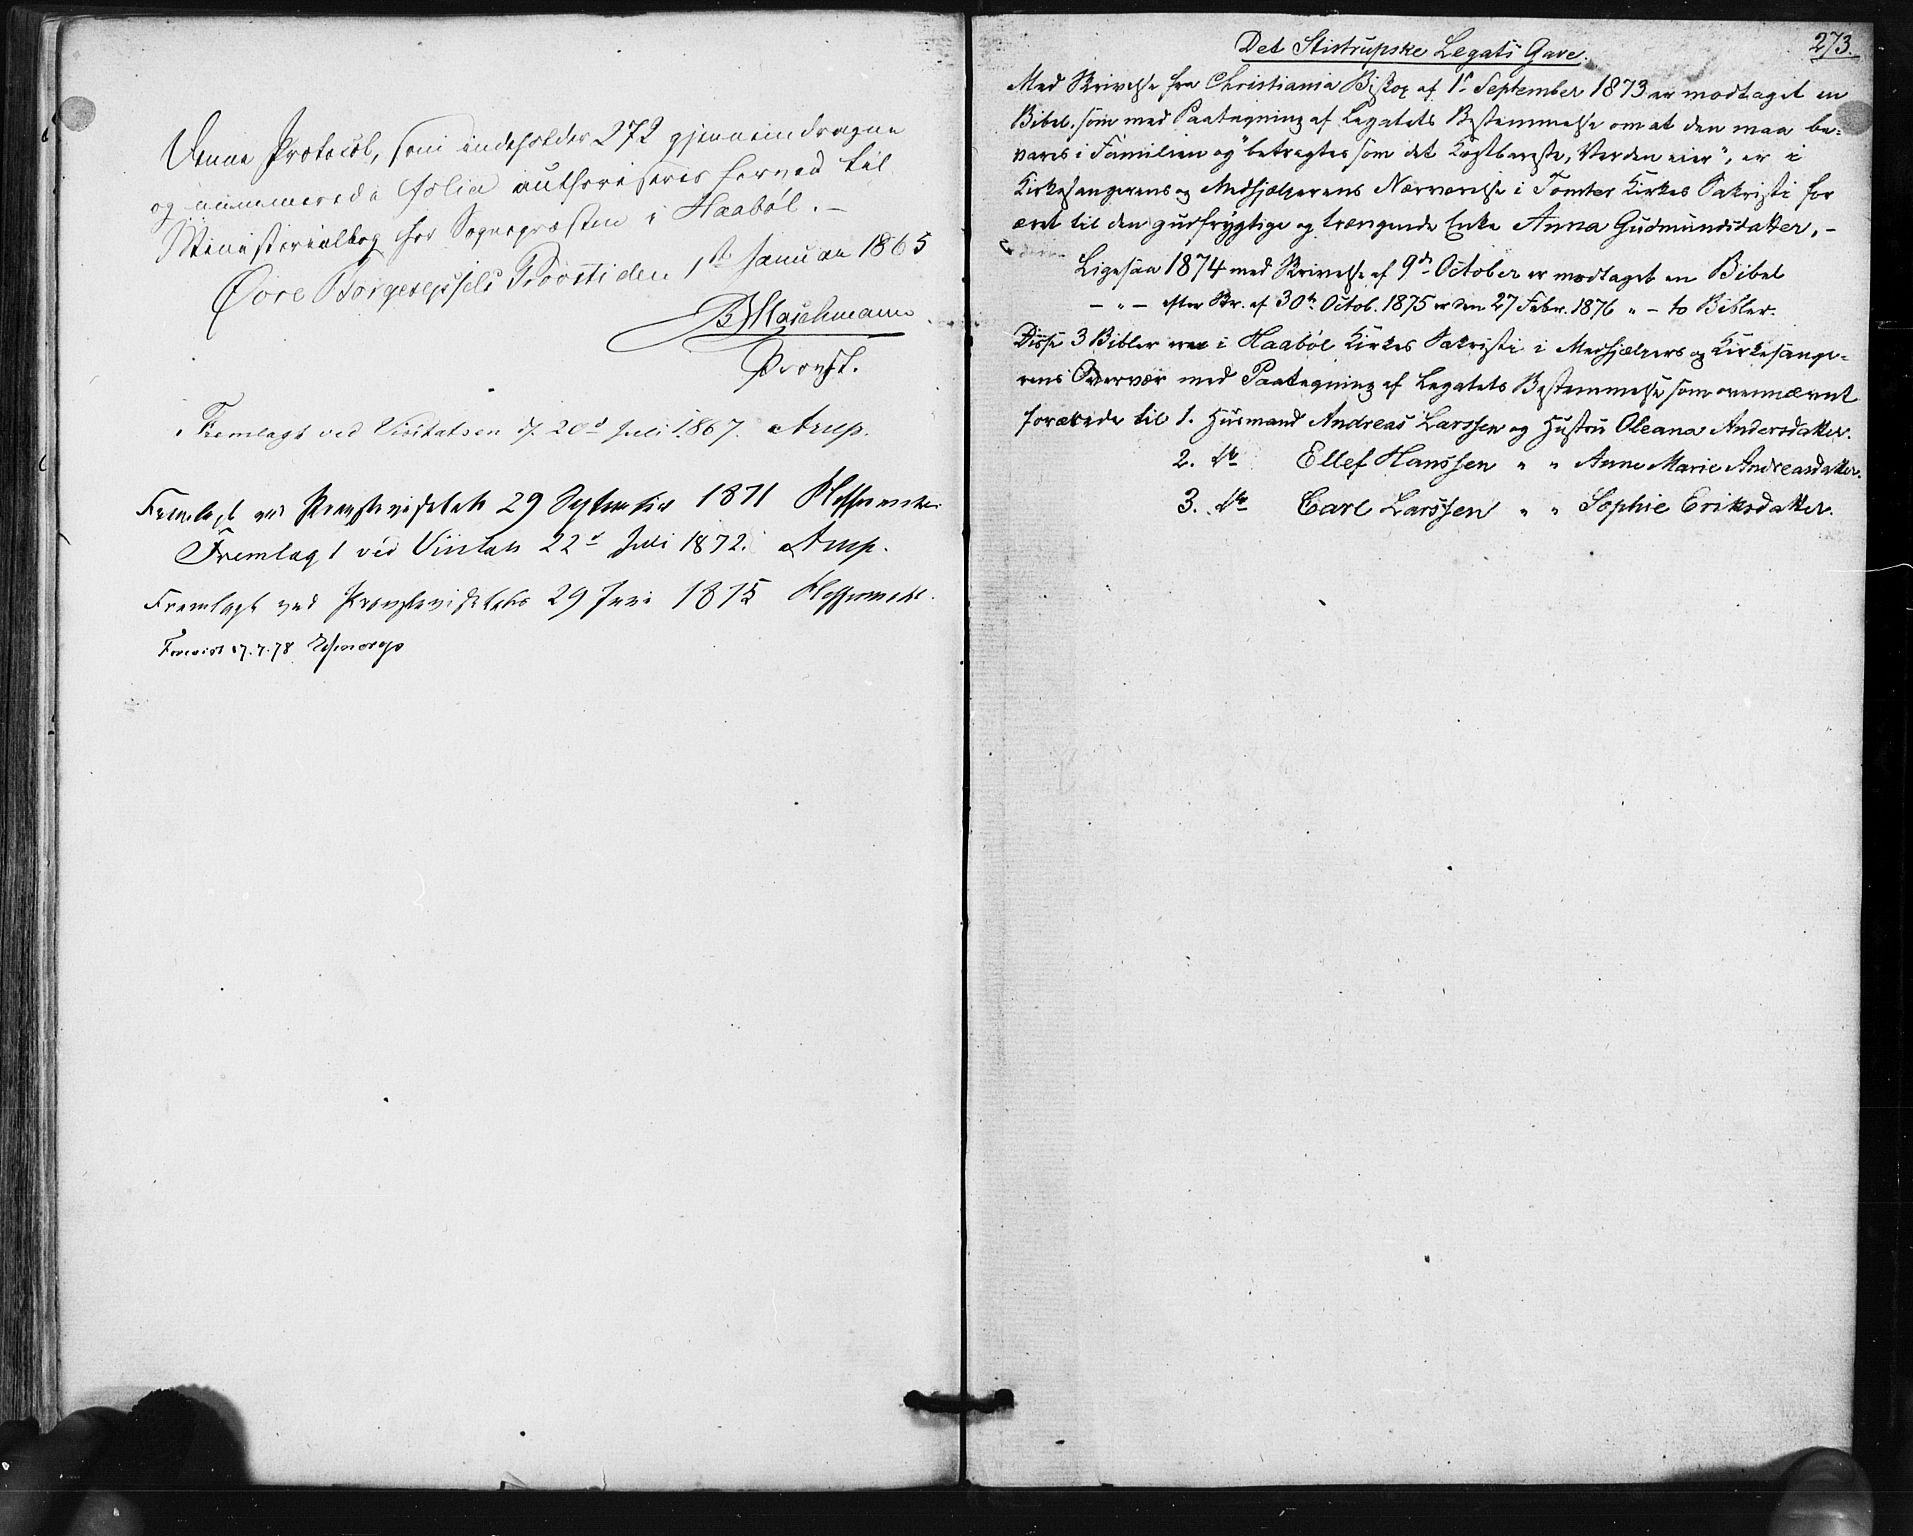 Denne Protocol, som indeholder 272 gjennemdragne
og nummererede Folier authoriseres herved til
Ministerialbog for Sognepræsten i Haabøl. –
Øvre Borgesyssels Provsti den 1ste Januar 1865
Maschmann
Provst.
Fremlagt ved Visitatsen d. 20d Juli 1867. Arup.
Fremlagt ved Provstevisitats 29 September 1871
Fremlagt ved Visitats 22d Juli 1872. Arup.
Fremlagt ved Provstevisitats 29 Juni 1875
Forevist 17.7.78
273.
Det Stistrupske Legats Gave.
Med Skrivelse fra Christiania Biskop af 1ste September 1873 er modtaget en
Bibel, som med Paategning af Legatets Bestemmelse om at den maa be-
vares i Familien og "betragtes som det Kostbareste, Verden eier", er i
Kirkesangerens og Medhjælperens Nærværelse i Tomter Kirkes Sakristi for
æret til den gudfrygtige og trængende Enke Anna Gudmundsdatter. –
Ligesaa 1874 med Skrivelse af 9de October er modtaget en Bibel
– " – efter Skr. af 30te Octob. 1875 er den 27 Febr. 1876 " – to Bibler.
Disse 3 Bibler ere i Haabøl Kirkes Sakristi i Medhjælpers og Kirkesange-
rens Overvær med Paategning af Legatets Bestemmelse som ovennævnt
forærede til 1. Husmand Andreas Larssen og Hustru Oleana Andersdatter.
2. do Ellef Hanssen " " Anne Marie Andreasdatter.
3. do Carl Larssen " " Sophie Eriksdatter.